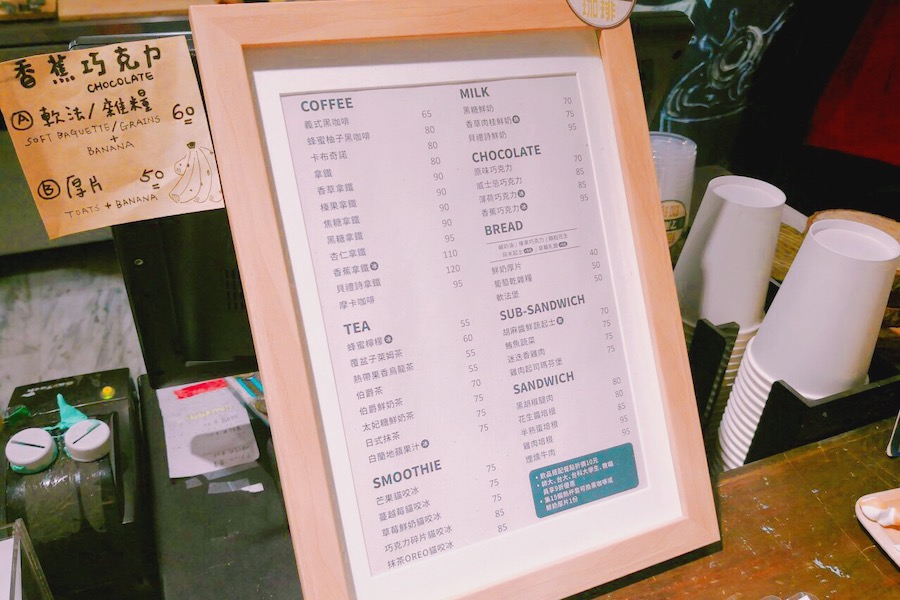 香蕉巧克力
CHOCOLATE
A 軟法/雜糧 60
SOFT BAGUETTE/GRAINS
+
BANANA
B 厚片 50
TOATS + BANANA
咖啡
COFFEE
義式黑咖啡 65
蜂蜜柚子黑咖啡 80
卡布奇諾 80
拿鐵 80
香草拿鐵 90
榛果拿鐵 90
焦糖拿鐵 90
黑糖拿鐵 90
杏仁拿鐵 95
香蕉拿鐵 冰 110
貝禮詩拿鐵 120
摩卡咖啡 95
TEA
蜂蜜檸檬 冰 55
覆盆子萊姆茶 60
熱帶果香烏龍茶 55
伯爵茶 55
伯爵鮮奶茶 70
太妃糖鮮奶茶 75
日式抹茶 75
白蘭地蘋果汁 冰 75
SMOOTHIE
芒果貓咬冰 75
蔓越莓貓咬冰 75
草莓鮮奶貓咬冰 75
巧克力碎片貓咬冰 85
抹茶OREO貓咬冰 85
MILK
黑糖鮮奶 70
香草肉桂鮮奶 75
貝禮詩鮮奶 95
CHOCOLATE
原味巧克力 70
威士忌巧克力 85
薄荷巧克力 冰 85
香蕉巧克力 冰 95
BREAD
鮮奶厚片 40
葡萄乾雜糧 50
軟法堡 50
SUB-SANDWICH
胡麻醬鮮蔬起士 70
鮪魚蔬菜 75
迷迭香雞肉 75
雞肉起司瑪芬堡 75
SANDWICH
黑胡椒腿肉 80
花生醬培根 80
半熟蛋培根 85
雞肉培根 95
煙燻牛肉 95
• 飲品搭配餐點折價10元
• 師大、台大、台科大學生、教職
員享9折優惠
• 集10個熱杯套可換黑咖啡或
鮮奶厚片1份